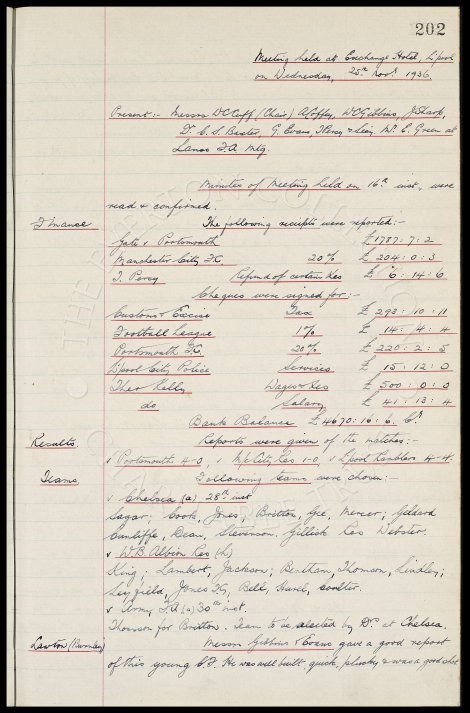 202
Meeting held at Exchange Hotel, L'pool
on Wednesday, 25th Novr 1936.
Present:- Messrs W.C. Cuff (Chair) A. Coffey, W.C. Gibbins, J. Sharp,
Dr. C.S. Baxter, G. Evans, Mr. E. Green at
Lancs F.A. Mtg.
Minutes of Meeting held on 16th inst, were
read & confirmed.
Finance The following receipts were reported:-
Gate v Portsmouth £1787: 7: 2
Manchester City F.C. 20% £ 204: 0: 3
T. Percy Refund of certain £ 6: 14: 6
Cheques were signed for:-
Customs & Excise Tax £ 293: 10: 11
Football League 1% £ 14: 4: 4
Portsmouth F.C. 20% £ 220: 2: 5
L'pool City Police Services £ 15: 12: 0
Theo Kelly Wages & £ 500: 0: 0
do Salary £ 41: 13: 4
Bank Balance £4670: 16: 6. Cr.
Results. Reports were given of the matches:-
v Portsmouth 4-0, v M/c City Res 1-0, v L'pool Ramblers 4-4.
Teams. Following teams were chosen:-
v Chelsea (a) 28th inst
Sagar; Cook, Jones; Britton, Gee, Mercer; Geldard
Cunliffe, Dean, Stevenson, Gillick Res Webster.
v W.B. Albion Res (h)
King; Lambert, Jackson; Bentham, Thomson, Lindley;
Leyfield, Jones T.G., Bell, Hurel, Coulter.
v Army F.A. (a) 30th inst.
Thomson for Britton. Team to be selected by Drs at Chelsea.
Lawton (Burnley) Messrs Gibbins & Evans gave a good report
of this young C.F. He was well built, quick, plucky & was a good shot